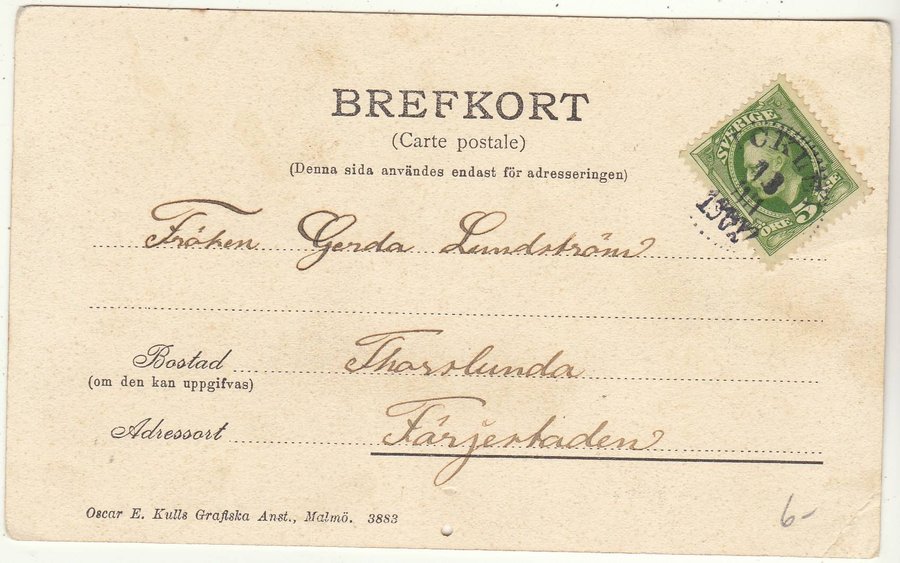 BREFKORT
(Carte postale)
(Denna sida användes endast för adresseringen)
SVERIGE
5
ÖRE
13
1902
Fröken Gerda Lundström
Bostad Thorslunda
(om den kan uppgifvas)
Adressort Färjestaden
Oscar E. Kulls Grafiska Anst., Malmö. 3883
6-